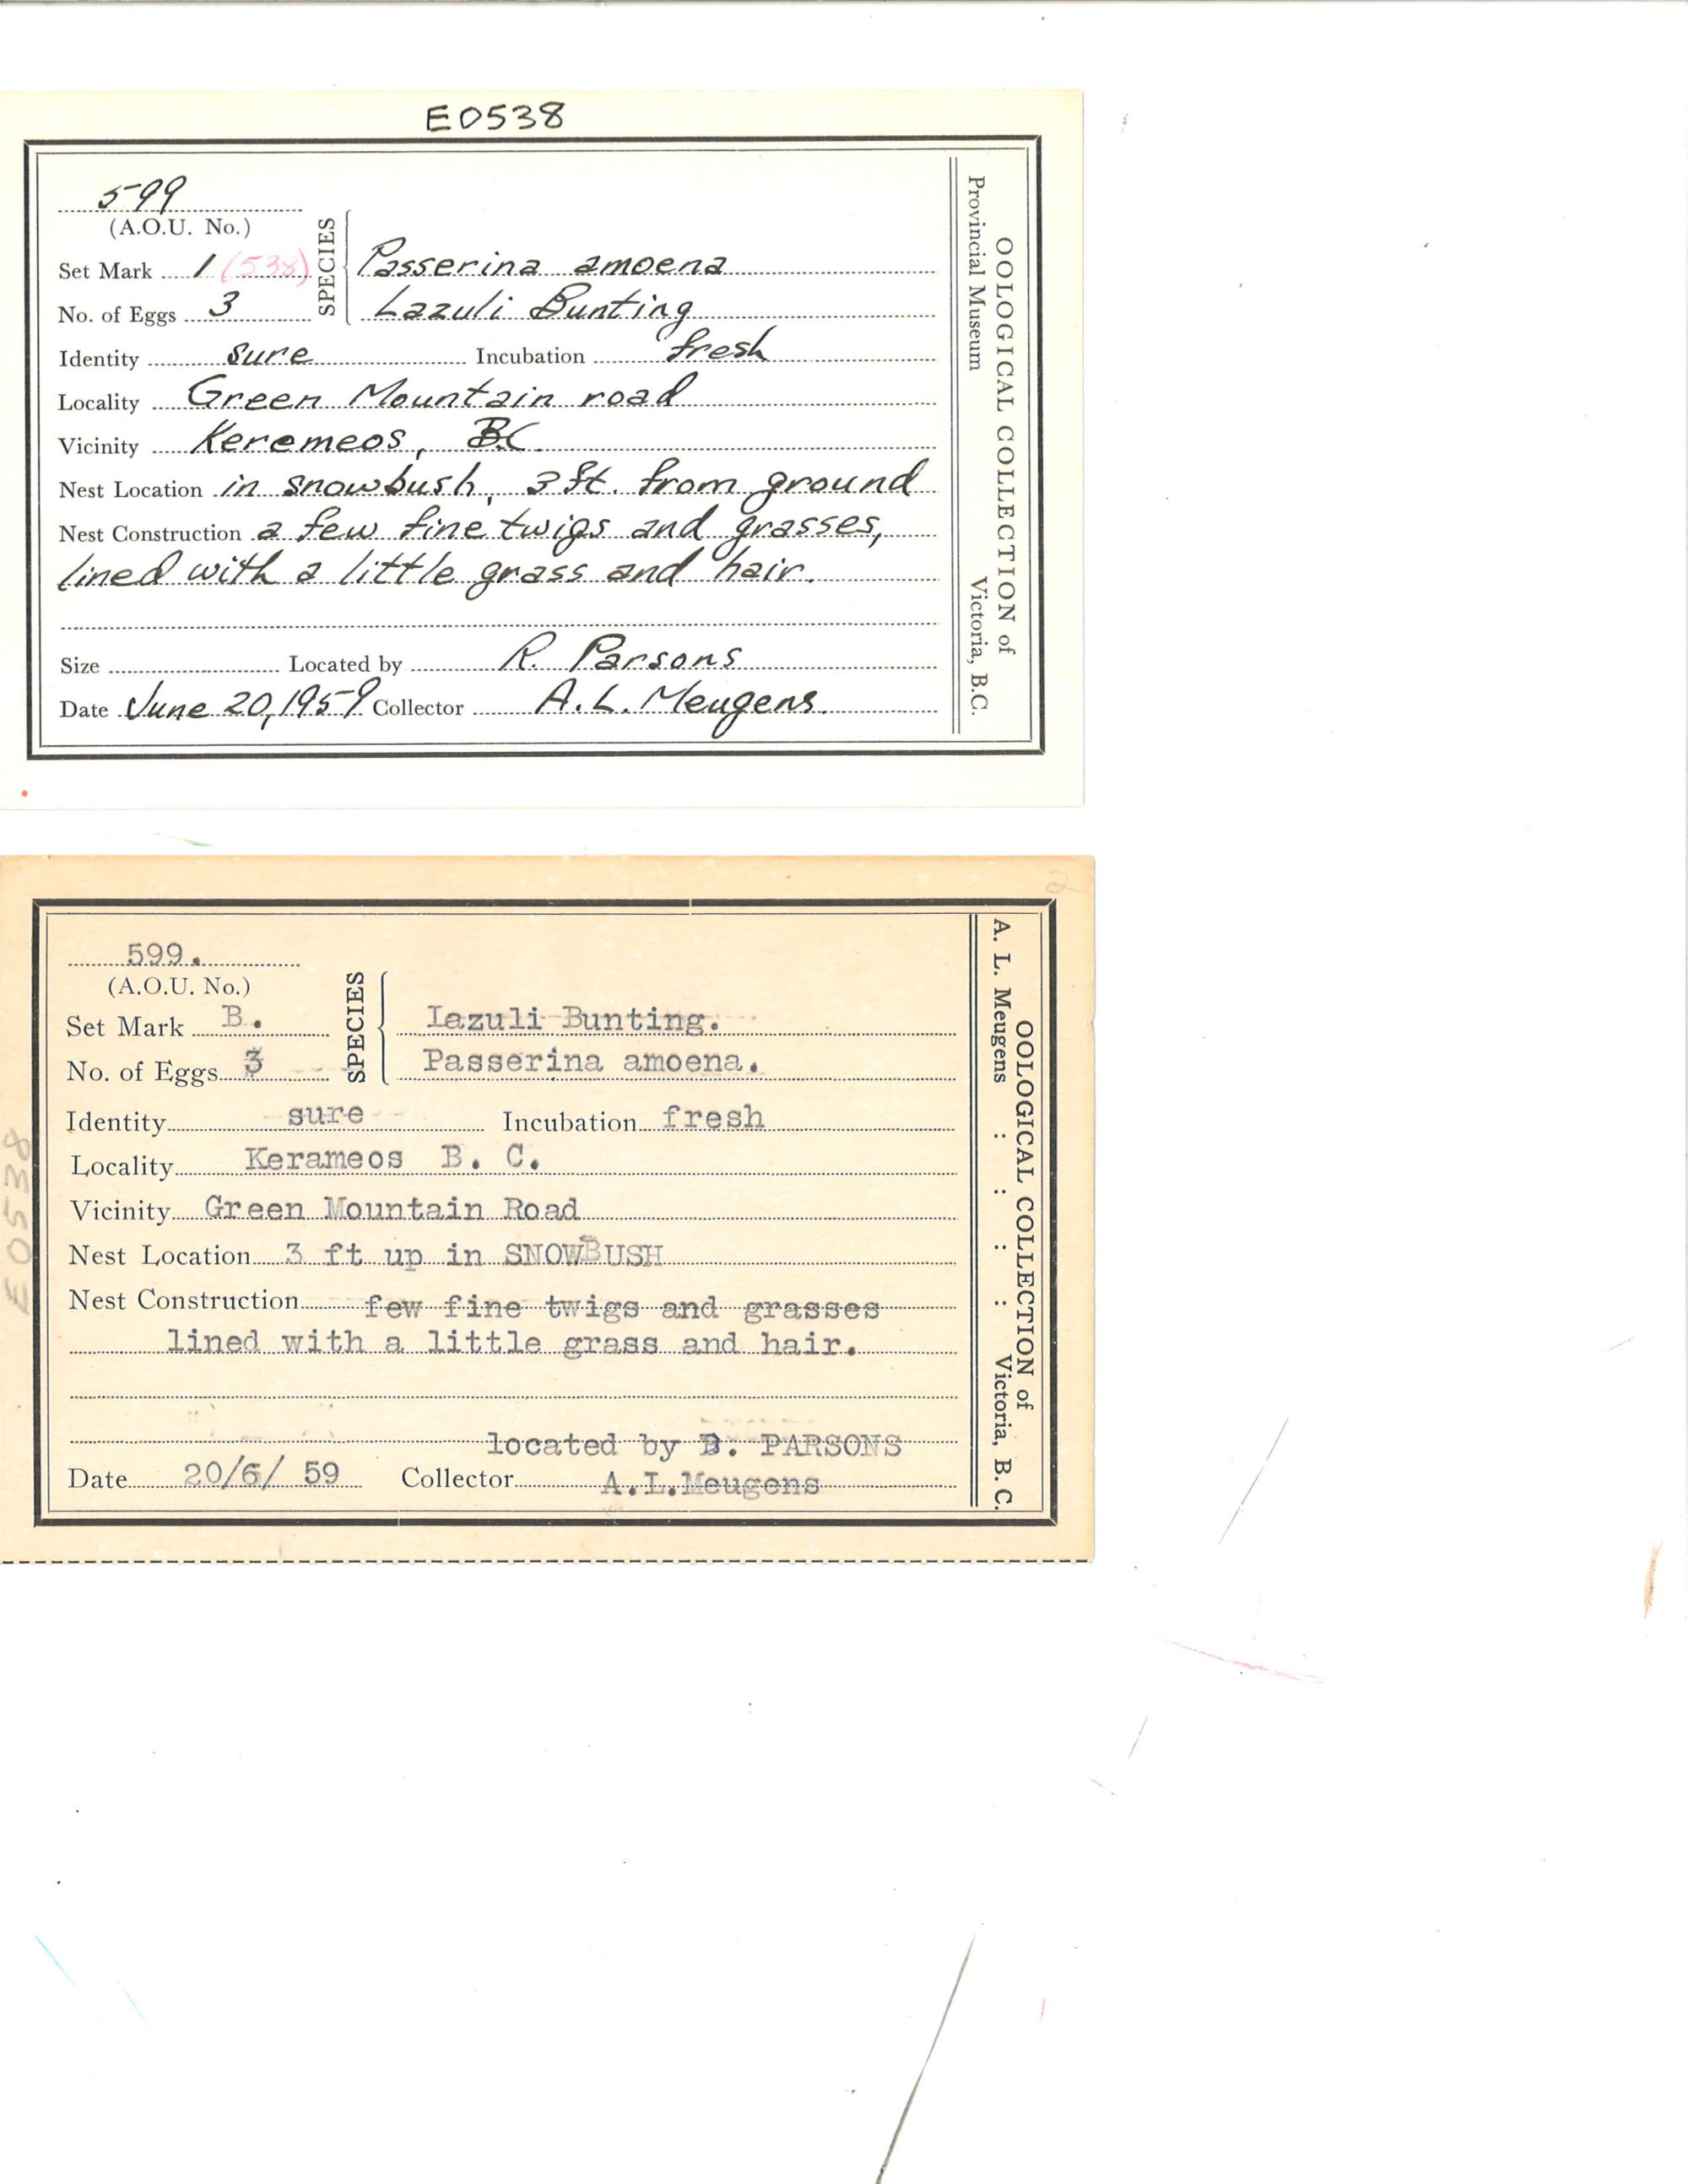 E0538
599
(A.O.U. No.)
Set Mark 1 (538)
No. of Eggs 3
SPECIES
Passerina amoena
Lazuli Bunting
Identity sure Incubation fresh
Locality Green Mountain road
Vicinity Keremeos, B.C.
Nest Location in snowbush, 3 ft. from ground
Nest Construction a few fine twigs and grasses,
lined with a little grass and hair.
Size Located by R. Parsons
Date June 20, 1959 Collector A. L. Meugens.
OOLOGICAL COLLECTION of
Provincial Museum Victoria, B.C.
2
599.
(A.O.U. No.)
Set Mark B.
No. of Eggs 3
SPECIES
Iazuli Bunting.
Passerina amoena.
Identity sure Incubation fresh
Locality Kerameos B. C.
Vicinity Green Mountain Road
Nest Location 3 ft up in SNOWBUSH
Nest Construction few fine twigs and grasses
lined with a little grass and hair.
located by PARSONS
Date 20/6/ 59 Collector A.L.Meugens
OOLOGICAL COLLECTION of
A. L. Meugens : : : : Victoria, B. C.
E0538